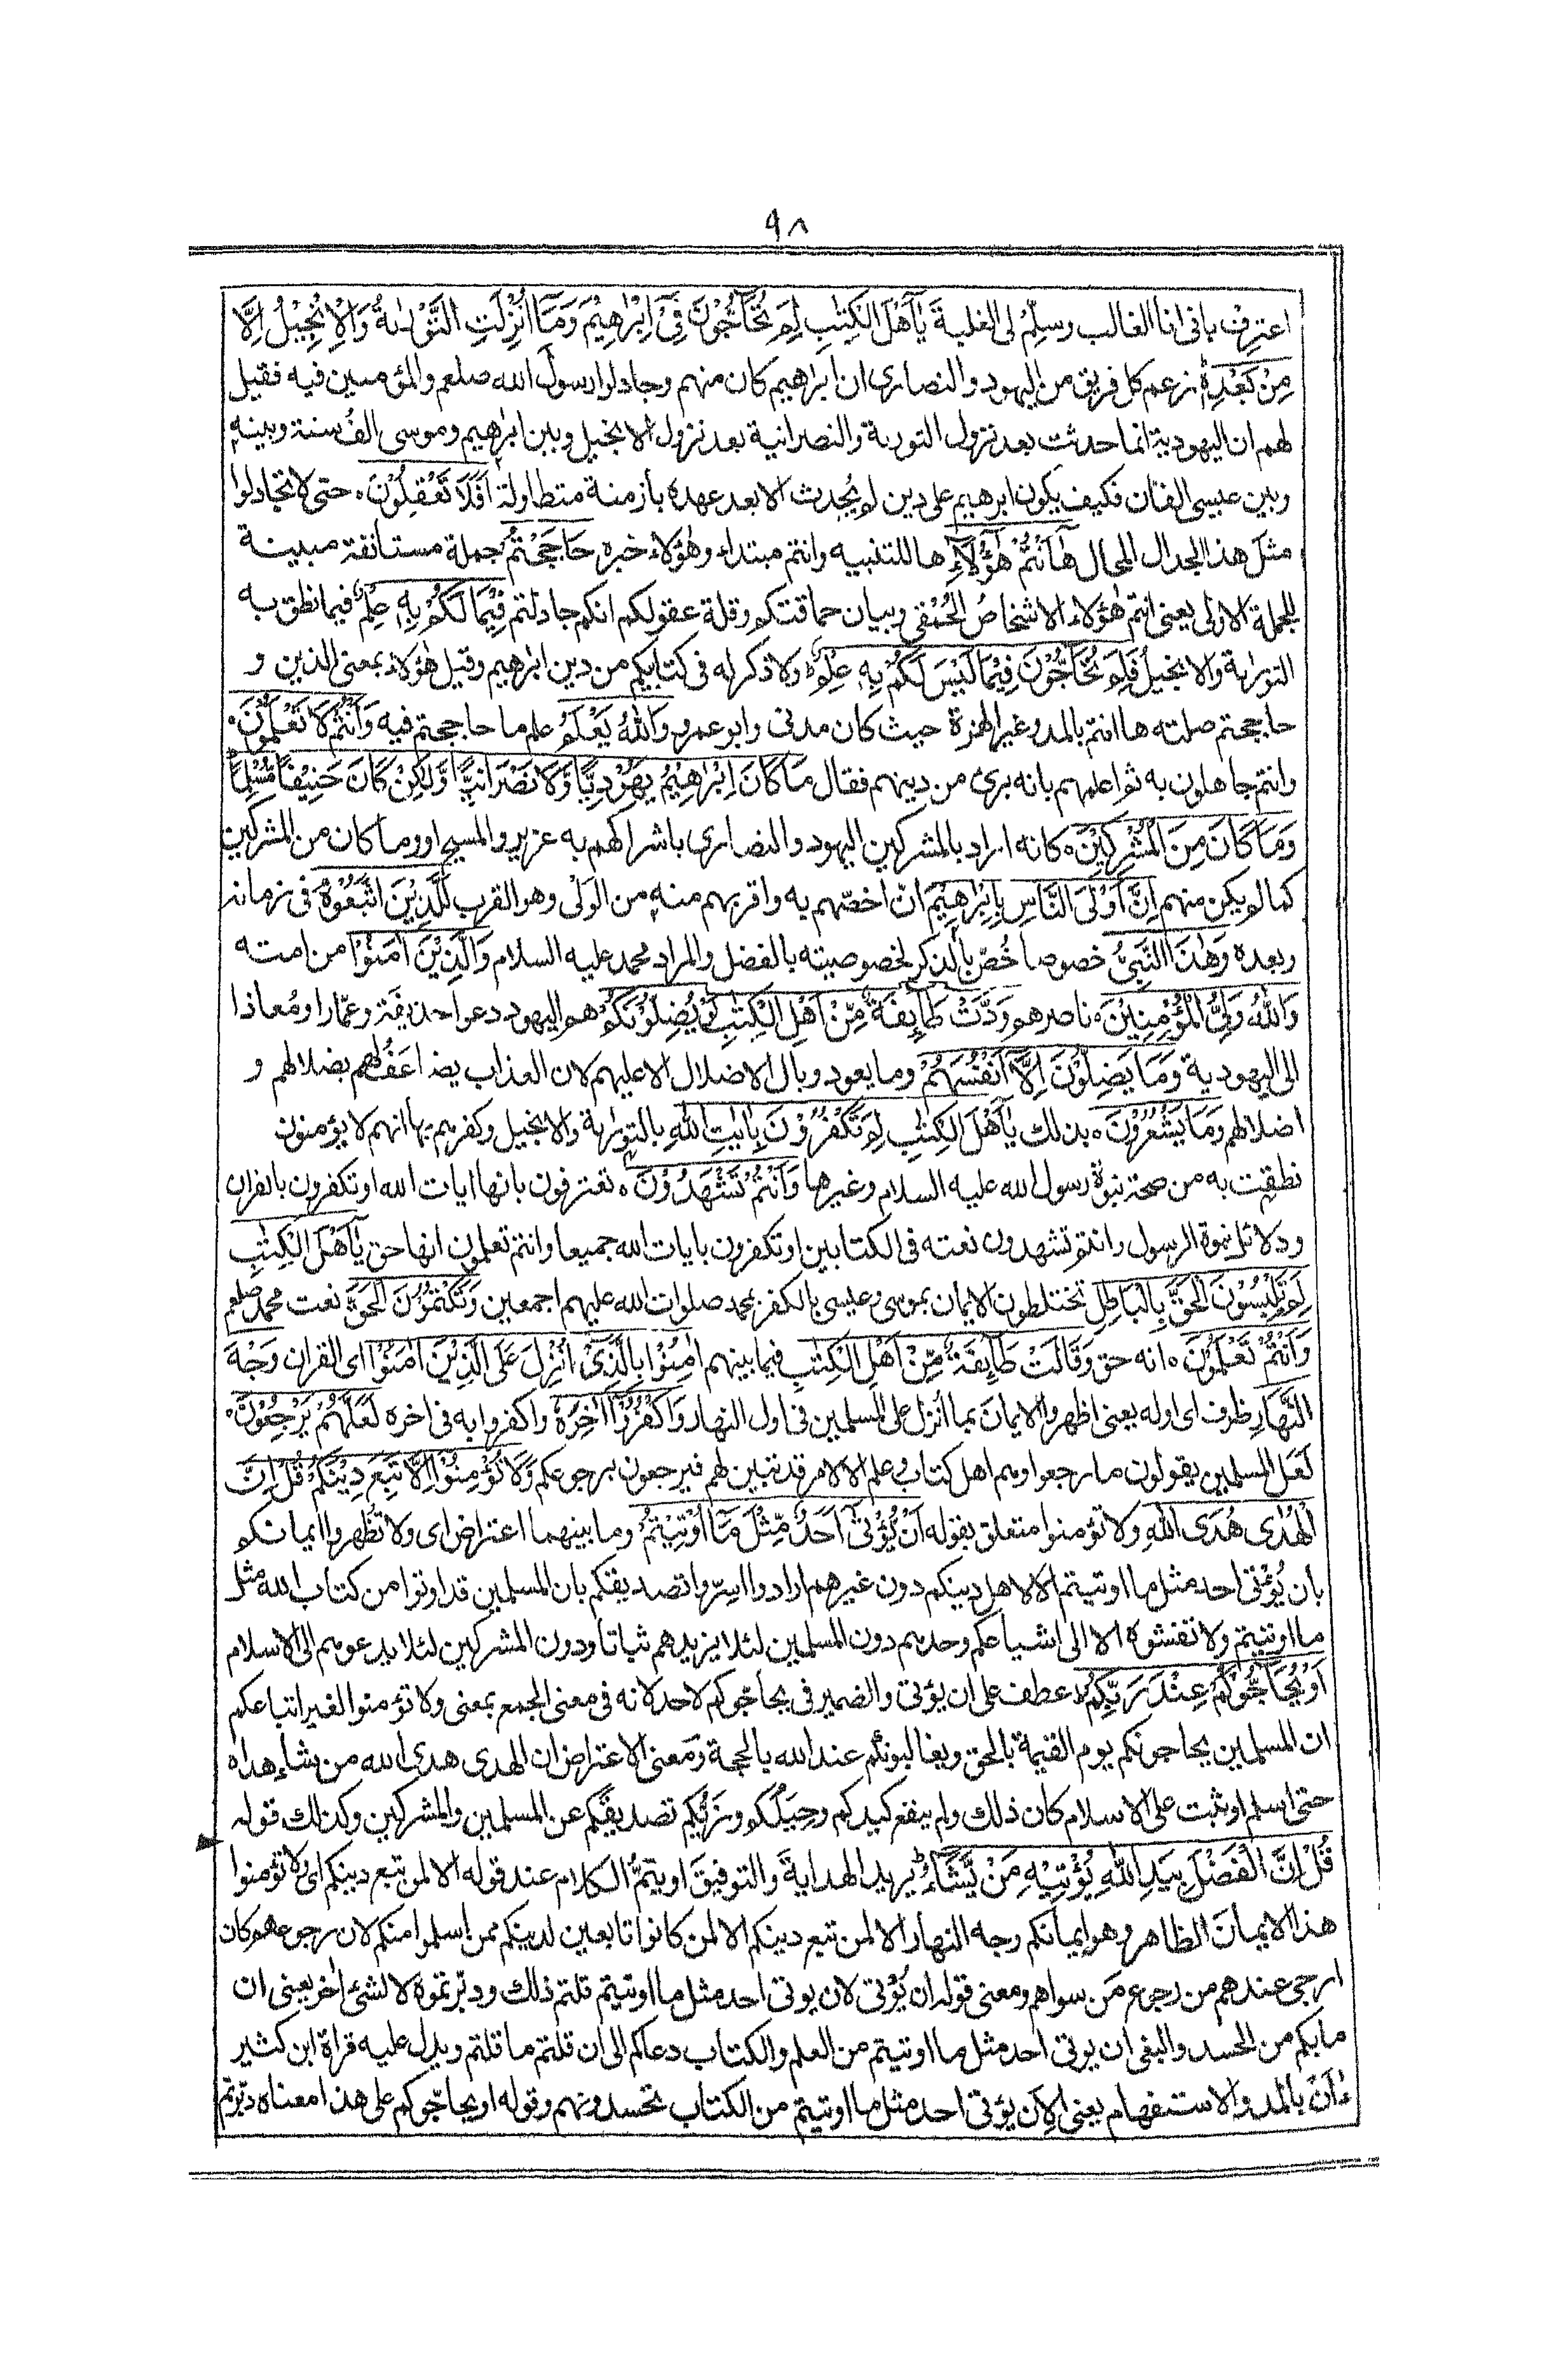 ٩٨
اعترف بانی انا الغالب وسلّم لی الغلبة يٰٓاَهْلَ الْكِتٰبِ لِمَ تُحَآجُّوْنَ فِيْٓ اِبْرٰهِيْمَ وَمَآ اُنْزِلَتِ التَّوْرٰىةُ وَالْاِنْجِيْلُ اِلَّا
مِنْ بَعْدِهٖ زعم كل فريق من اليهود والنصاری ان ابراهيم كان منهم وجادلوا رسول الله صلعم والمؤمنين فيه فقيل
لهم ان اليهودية انما حدثت بعد نزول التورىة والنصرانية بعد نزول الانجيل وبين ابرٰهيم وموسی الفُ سنة وبينهٖ
وبين عيسی الفان فكيف يكون ابرهيم علی دين لم يُحدث الا بعد عهده بأزمنة متطاولة اَفَلَا تَعْقِلُوْنَ ه حتی لا تجادلوا
مثل هذا الجدال المحال هٰٓاَنْتُمْ هٰٓؤُلَآءِ ها للتنبيه وانتم مبتداء وهٰؤلاء خبره حَاجَجْتُمْ جملة مستانفة مبينة
للجملة الاولی يعنی انتم هٰؤلاء الاشخاصُ الحُمْقی وبيان حماقتكم وقلة عقولكم انكم جادلتم فِيْمَا لَكُمْ بِهٖ عِلْمٌ فيما نطق به
التورٰىة والانجيل فَلِمَ تُحَآجُّوْنَ فِيْمَا لَيْسَ لَكُمْ بِهٖ عِلْمٌ ولا ذكر له فی كتابيكم من دين ابرٰهيم وقيل هٰؤلاء بمعنی الذين و
حاججتم صلته ها انتم بالمد وغير الهمزة حيث كان مدنی وابو عمرو وَاللهُ يَعْلَمُ علم ما حاججتم فيه وَاَنْتُمْ لَا تَعْلَمُوْنَ ه
وانتم جاهلون به ثم اعلمهم بانه بری من دينهم فقال مَا كَانَ اِبْرٰهِيْمُ يَهُوْدِيًّا وَّلَا نَصْرَانِيًّا وَّلٰكِنْ كَانَ حَنِيْفًا مُّسْلِمًا
وَمَا كَانَ مِنَ الْمُشْرِكِيْنَ ه كانه اراد بالمشركين اليهود والنصاری باشراكهم به عزير والمسيح او وما كان من المشركين
كما لم يكن منهم اِنَّ اَوْلَی النَّاسِ بِاِبْرٰهِيْمَ انّ اخصّهم به واقربهم منه من الوَلْی وهو القرب لَلَّذِيْنَ اتَّبَعُوْهُ فی زمانه
وبعده وَهٰذَا النَّبِیُّ خصوصا خُصّ بالذكر لخصوصيته بالفضل والمراد محمد عليه السلام وَالَّذِيْنَ اٰمَنُوْا من امته
وَاللهُ وَلِیُّ الْمُؤْمِنِيْنَ ه ناصرهم وَدَّتْ طَّآئِفَةٌ مِّنْ اَهْلِ الْكِتٰبِ لَوْ يُضِلُّوْنَكُمْ هم اليهود دعوا حذيفة وعمّارا ومُعاذا
الی اليهودية وَمَا يُضِلُّوْنَ اِلَّآ اَنْفُسَهُمْ وما يعود وبال الاضلال الا عليهم لان العذاب يضاعَفُ لهم بضلالهم و
اضلالهم وَمَا يَشْعُرُوْنَ ه بذلك يٰٓاَهْلَ الْكِتٰبِ لِمَ تَكْفُرُوْنَ بِاٰيٰتِ اللهِ بالتورٰىة والانجيل وكفرهم بها انهم لا يؤمنون
نطقت به من صحة نبوّة رسول الله عليه السلام وغيرها وَاَنْتُمْ تَشْهَدُوْنَ ه تعترفون بانها ايات الله او تكفرون بالقرآن
ودلائل نبوة الرسول وانتم تشهدون نعته فی الكتابين او تكفرون بايات الله جميعا وانتم تعلمون انها حق يٰٓاَهْلَ الْكِتٰبِ
لِمَ تَلْبِسُوْنَ الْحَقَّ بِالْبَاطِلِ تختلطون الايمان بموسی وعيسی بالكفر بمحمد صلوات الله عليهم اجمعين وَتَكْتُمُوْنَ الْحَقَّ نعت محمد صلعم
وَاَنْتُمْ تَعْلَمُوْنَ ه انه حق وَقَالَتْ طَّآئِفَةٌ مِّنْ اَهْلِ الْكِتٰبِ فيما بينهم اٰمِنُوْا بِالَّذِیْٓ اُنْزِلَ عَلَی الَّذِيْنَ اٰمَنُوْا ای القران وَجْهَ
النَّهَارِ ظرف ای اوله يعنی اظهروا الايمان بما اُنزل علی المسلمين فی اول النهار وَاكْفُرُوْٓا اٰخِرَهٗ واكفروا به فی اخره لَعَلَّهُمْ يَرْجِعُوْنَ ه
لعل المسلمين يقولون ما رجعوا وهم اهل كتاب وعلم الا لامر قد تبين لهم فيرجعون برجوعكم وَلَا تُؤْمِنُوْٓا اِلَّا لِمَنْ تَبِعَ دِيْنَكُمْ قُلْ اِنَّ
الْهُدٰی هُدَی اللهِ ولا تؤمنوا متعلق بقوله اَنْ يُّؤْتٰٓی اَحَدٌ مِّثْلَ مَآ اُوْتِيْتُمْ وما بينهما اعتراض ای ولا تُظهروا ايمانكم
بأن يُؤتی احد مثل ما اوتيتم الا لاهل دينكم دون غيرهم ارادوا اسِرّوا تصديقكم بان المسلمين قد اوتوا من كتاب الله مثل
ما اوتيتم ولا تفشوه الا الی اشياعكم وحدهم دون المسلمين لئلا يزيدهم ثباتا ودون المشركين لئلا يدعوهم الی الاسلام
اَوْ يُحَآجُّوْكُمْ عِنْدَ رَبِّكُمْ عطف علی ان يؤتی والضمير فی يحاجّوكم لاحد لانه فی معنی الجمع بمعنی ولا تؤمنوا لغير اتباعكم
ان المسلمين يحاجونكم يوم القيمة بالحق ويغالبونكم عند الله بالحجة ومعنی الاعتراض ان الهدی هدی الله من يشاء هداه
حتی اسلم او ثبت علی الاسلام كان ذلك ولم ينفع كيدكم وحِيَلُكم وزيُّكم تصديقكم عن المسلمين والمشركين وكذلك قوله
قُلْ اِنَّ الْفَضْلَ بِيَدِ اللهِ يُؤْتِيْهِ مَنْ يَّشَآءُ يريد الهداية والتوفيق او يتمّ الكلام عند قوله الا لمن تبع دينكم ای ولا تؤمنوا
هذا الايمان الظاهر وهو ايمانكم وجه النهار الا لمن تبع دينكم الا لمن كانوا تابعين لدينكم ممن اسلموا منكم لان رجوعهم كان
ارجی عندهم من رجوع مَن سواهم ومعنی قوله ان يُؤتی لان يوتی احد مثل ما اوتيتم قلتم ذلك ودبّرتموه لا لشیء اٰخر يعنی ان
ما بكم من الحسد والبغی ان يوتی احد مثل ما اوتيتم من العلم والكتاب دعاكم الی ان قلتم ما قلتم ويدل عليه قراة ابن كثير
ءٰان بالمد والاستفهام يعنی اَلِاَن يؤتی احد مثل ما اوتيتم من الكتاب تحسدونهم وقوله او يحاجّوكم علی هذا معناه دبّرتم